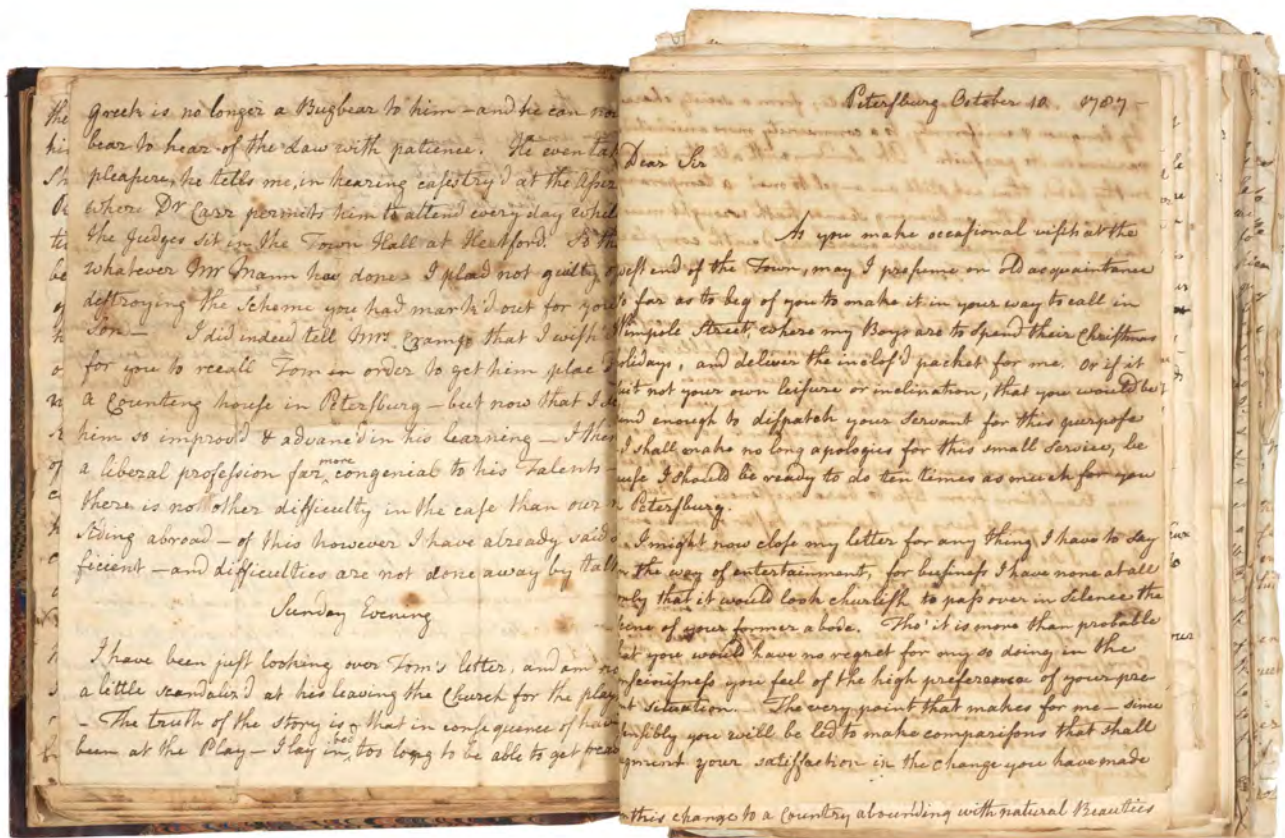 Greek is no longer a Bugbear to him – and he can now
bear to hear of the Law with patience. He even tak
pleasure, he tells me, in hearing cases try'd at the Assiz
where Dr Carr permits him to attend every day whil
the Judges sit in the Town Hall at Hertford. So th
whatever Mr Mann has done I plead not guilty o
destroying the Scheme you had mark'd out for you
Son – I did indeed tell Mrs Cramp that I wish'd
for you to recall Tom in order to get him plac'd
a Counting house in Petersburg – but now that I se
him so improv'd & advanc'd in his learning – I thin
a liberal profession far more congenial to his Talents –
there is no other difficulty in the case than our
siding abroad – of this however I have already said
ficient – and difficulties are not done away by talk
Sunday Evening
I have been just looking over Tom's letter, and am no
a little scandaliz'd at his leaving the Church for the play
– The truth of the story is that in consequence of hav
been at the Play – I lay in bed too long to be able to get
Petersburg October 10 1787
Dear Sir
As you make occasional visits at the
west end of the Town, may I presume on old acquaintance
so far as to beg of you to make it in your way to call in
Wimpole Street, where my Boys are to spend their Christmas
olidays, and deliver the inclos'd packet for me. Or if it
suit not your own leisure or inclination, that you would be
ind enough to dispatch your Servant for this purpose
I shall make no long apologies for this small Service, be
ause I should be ready to do ten times as much for you
n Petersburg.
I might now close my letter for any thing I have to say
in the way of entertainment, for business I have none at all
only that it would look churlish to pass over in Silence the
scene of your former abode. Tho' it is more than probable
hat you would have no regret for my so doing, in the
onsciousness you feel of the high preference of your pre
nt situation. The very point that makes for me – since
ensibly you will be led to make comparisons that shall
ugment your satisfaction in the change you have made
this change to a Country abounding with natural Beauties